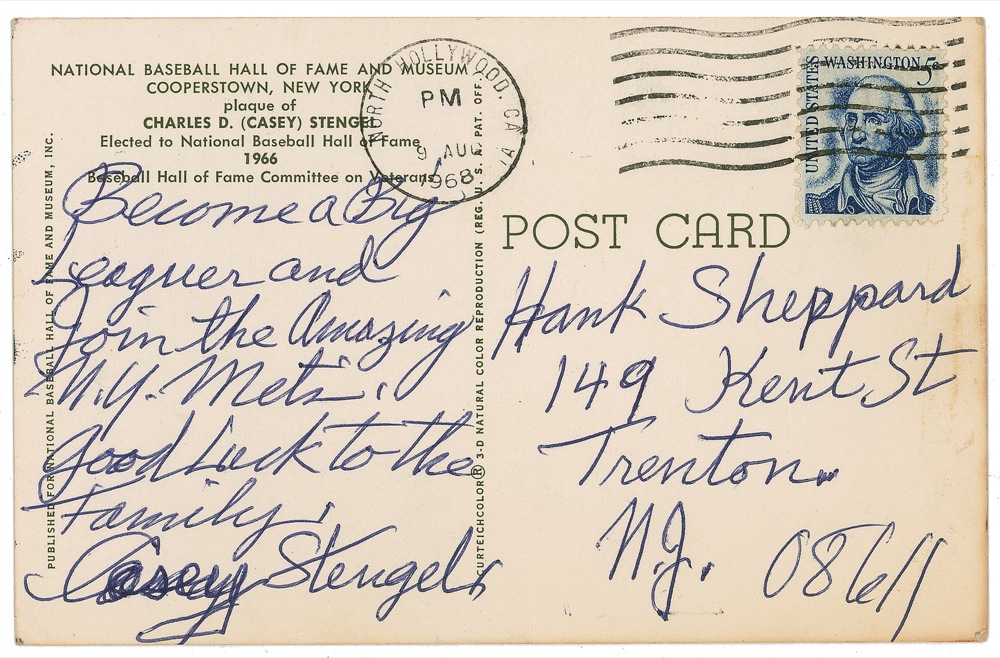 NATIONAL BASEBALL HALL OF FAME AND MUSEUM
COOPERSTOWN, NEW YORK
plaque of
CHARLES D. (CASEY) STENGEL
Elected to National Baseball Hall of Fame
1966
Baseball Hall of Fame Committee on Veterans
Become a Big
Leaguer and
Join the Amazing
N.Y. Mets.
Good Luck to the
Family.
Casey Stengel
PUBLISHED FOR NATIONAL BASEBALL HALL OF FAME AND MUSEUM, INC.
CURTEICHCOLOR® 3-D NATURAL COLOR REPRODUCTION (REG. U. S. A. PAT. OFF.)
NORTH HOLLYWOOD, CA
PM
9 AUG
1968
UNITED STATES
WASHINGTON 5¢
POST CARD
Hank Sheppard
149 Kent St
Trenton.
N.J. 08611